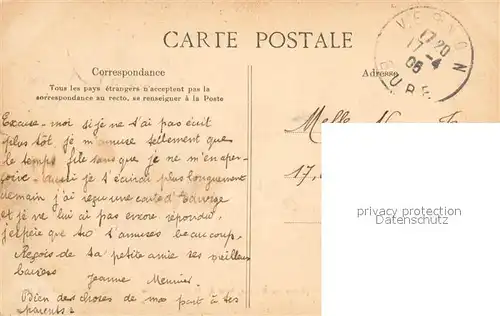 CARTE POSTALE
Correspondance
Tous les pays étrangers n'acceptent pas la
correspondance au recto, se renseigner à la Poste
Adresse
VERNON
17-4
EURE
Excuse-moi si je ne t'ai pas écrit
plus tôt je m'amuse tellement que
le temps file sans que je ne m'en aper-
çoive aussi je t'écrirai plus longuement
demain j'ai reçu une carte d'
et je ne lui ai pas encore répondu,
j'espère que tu t'amuses beaucoup.
Reçois de ta petite amie ses meilleurs
baisers
Jeanne Meunier
Bien des choses de ma part à tes
parents.
Melle
17,
privacy protection
Datenschutz